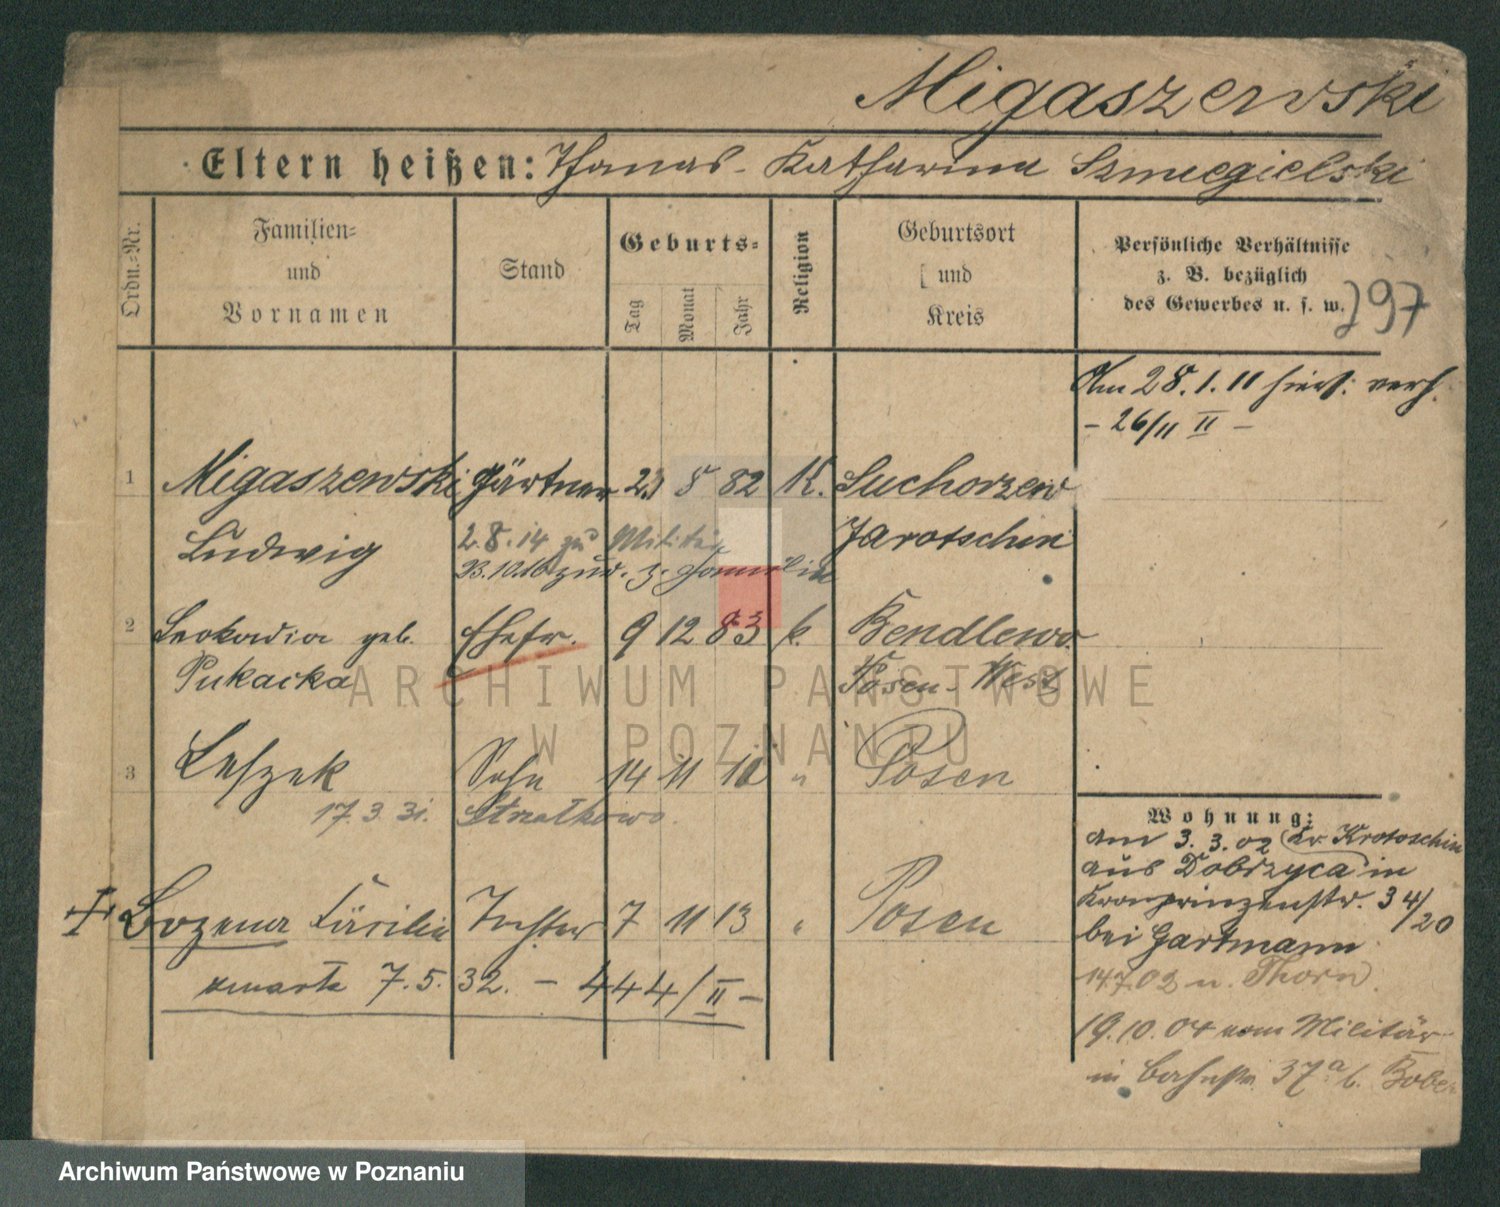 Migaszewski
Eltern heißen: Thomas - Katharina Szmiegielski
Ordn.-Nr.
Familien-
und
Vornamen
Stand
Geburts-
Tag
Monat
Jahr
Religion
Geburtsort
und
Kreis
Persönliche Verhältnisse
z. B. bezüglich
des Gewerbes u. s. w.
297
Am 28.1.11 hiers. verh.
- 26/11 II -
1 Migaszewski Gärtner 23 8 82 K. Suchorzew
Ludwig Jarotschin
2.8.14 zu Militär
23.10.16 zur. z. Familie
2 Leokadia geb. Ehefr. 9 12 83 k. Bendlewo
Pukacka Posen-West
3 Leszek Sohn 14 11 11 " Posen
17.3.31. Strzałkowo.
Bozena Cäcilie Tochter 7 11 13 " Posen
zmarła 7.5.32. - 444/II -
Wohnung:
am 3.3.02 (Kr. Krotoschin
aus Dobrzyca in
Kronprinzenstr. 34/20
bei Gartmann
14.7.02 n. Thorn.
19.10.04 vom Militär
in Bahnstr. 37a b. Bober
ARCHIWUM PAŃSTWOWE
W POZNANIU
Archiwum Państwowe w Poznaniu